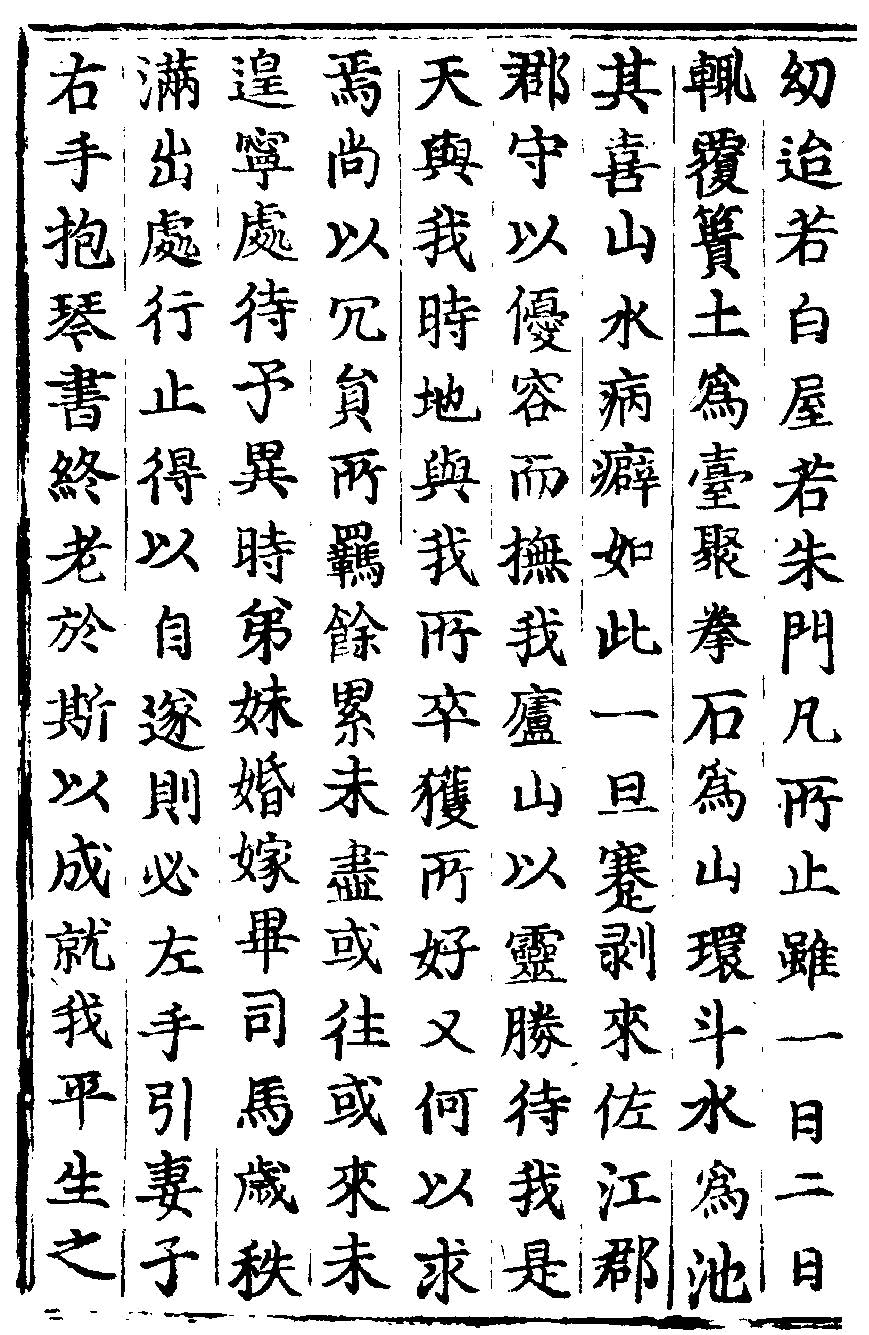 幼迨若白屋若朱門凡所止雖一日二日
輒覆簣土爲臺聚拳石爲山環斗水爲池
其喜山水病癖如此一旦蹇剥來佐江郡
郡守以優容而撫我廬山以靈勝待我是
天與我時地與我所卒獲所好又何以求
焉尚以冗貟所羈餘累未盡或往或來未
遑寧處待予異時弟妹婚嫁畢司馬歲秩
滿出處行止得以自遂則必左手引妻子
右手抱琴書終老於斯以成就我平生之